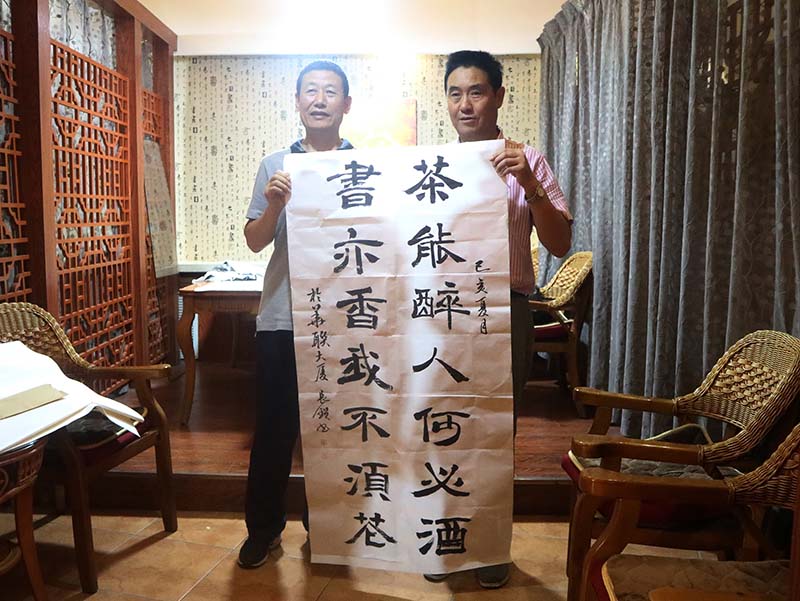 茶能醉人何必酒
己亥夏月
書亦香我不湏花
於華聯大厦